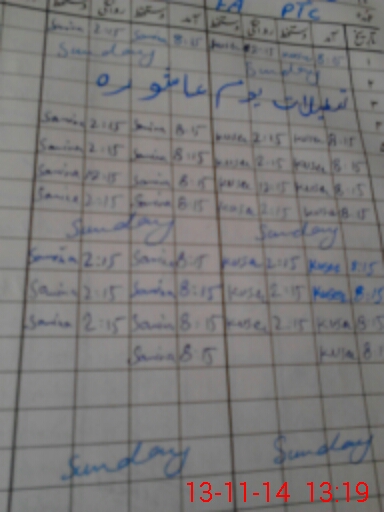 PTC
Samina 2:15 Samina 8:15 kusar 2:15 kusar 8:15
Sunday Sunday
تعطیلات یوم عاشورہ
Samina 2:15 Samina 8:15 kusar 2:15 kusar 8:15
Samina 2:15 Samina 8:15 kusar 2:15 kusar 8:15
Samina 12:15 Samina 8:15 kusar 12:15 kusar 8:15
Samina 2:15 Samina 8:15 kusar 2:15 kusar 8:15
Sunday Sunday
Samina 2:15 Samina 8:15 kusar 2:15 kusar 8:15
Samina 2:15 Samina 8:15 kusar 2:15 kusar 8:15
Samina 2:15 Samina 8:15 kusar 2:15 kusar 8:15
Samina 8:15 kusar 8:15
Sunday Sunday
13-11-14 13:19